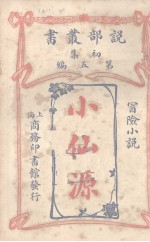 說部叢書
初集
第五編
冒險小說
小仙源
上海商務印書館發行